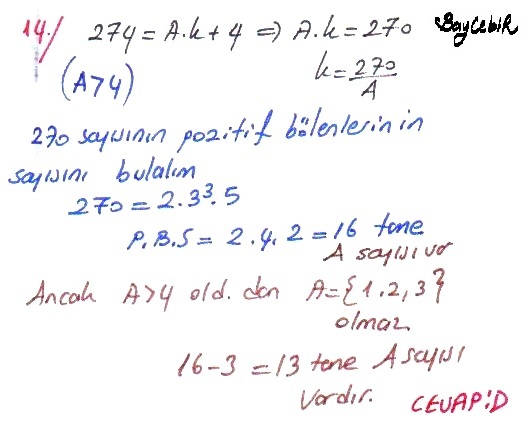 14./ 274 = A.k + 4 => A.k = 270 BayCebir
(A>4) k = 270/A
270 sayısının pozitif bölenlerinin
sayısını bulalım
270 = 2.3³.5
P.B.S = 2.4.2 = 16 tane
A sayısı var
Ancak A>4 old. dan A={1.2,3}
olmaz
16-3 = 13 tane A sayısı
vardır. CEVAP:D